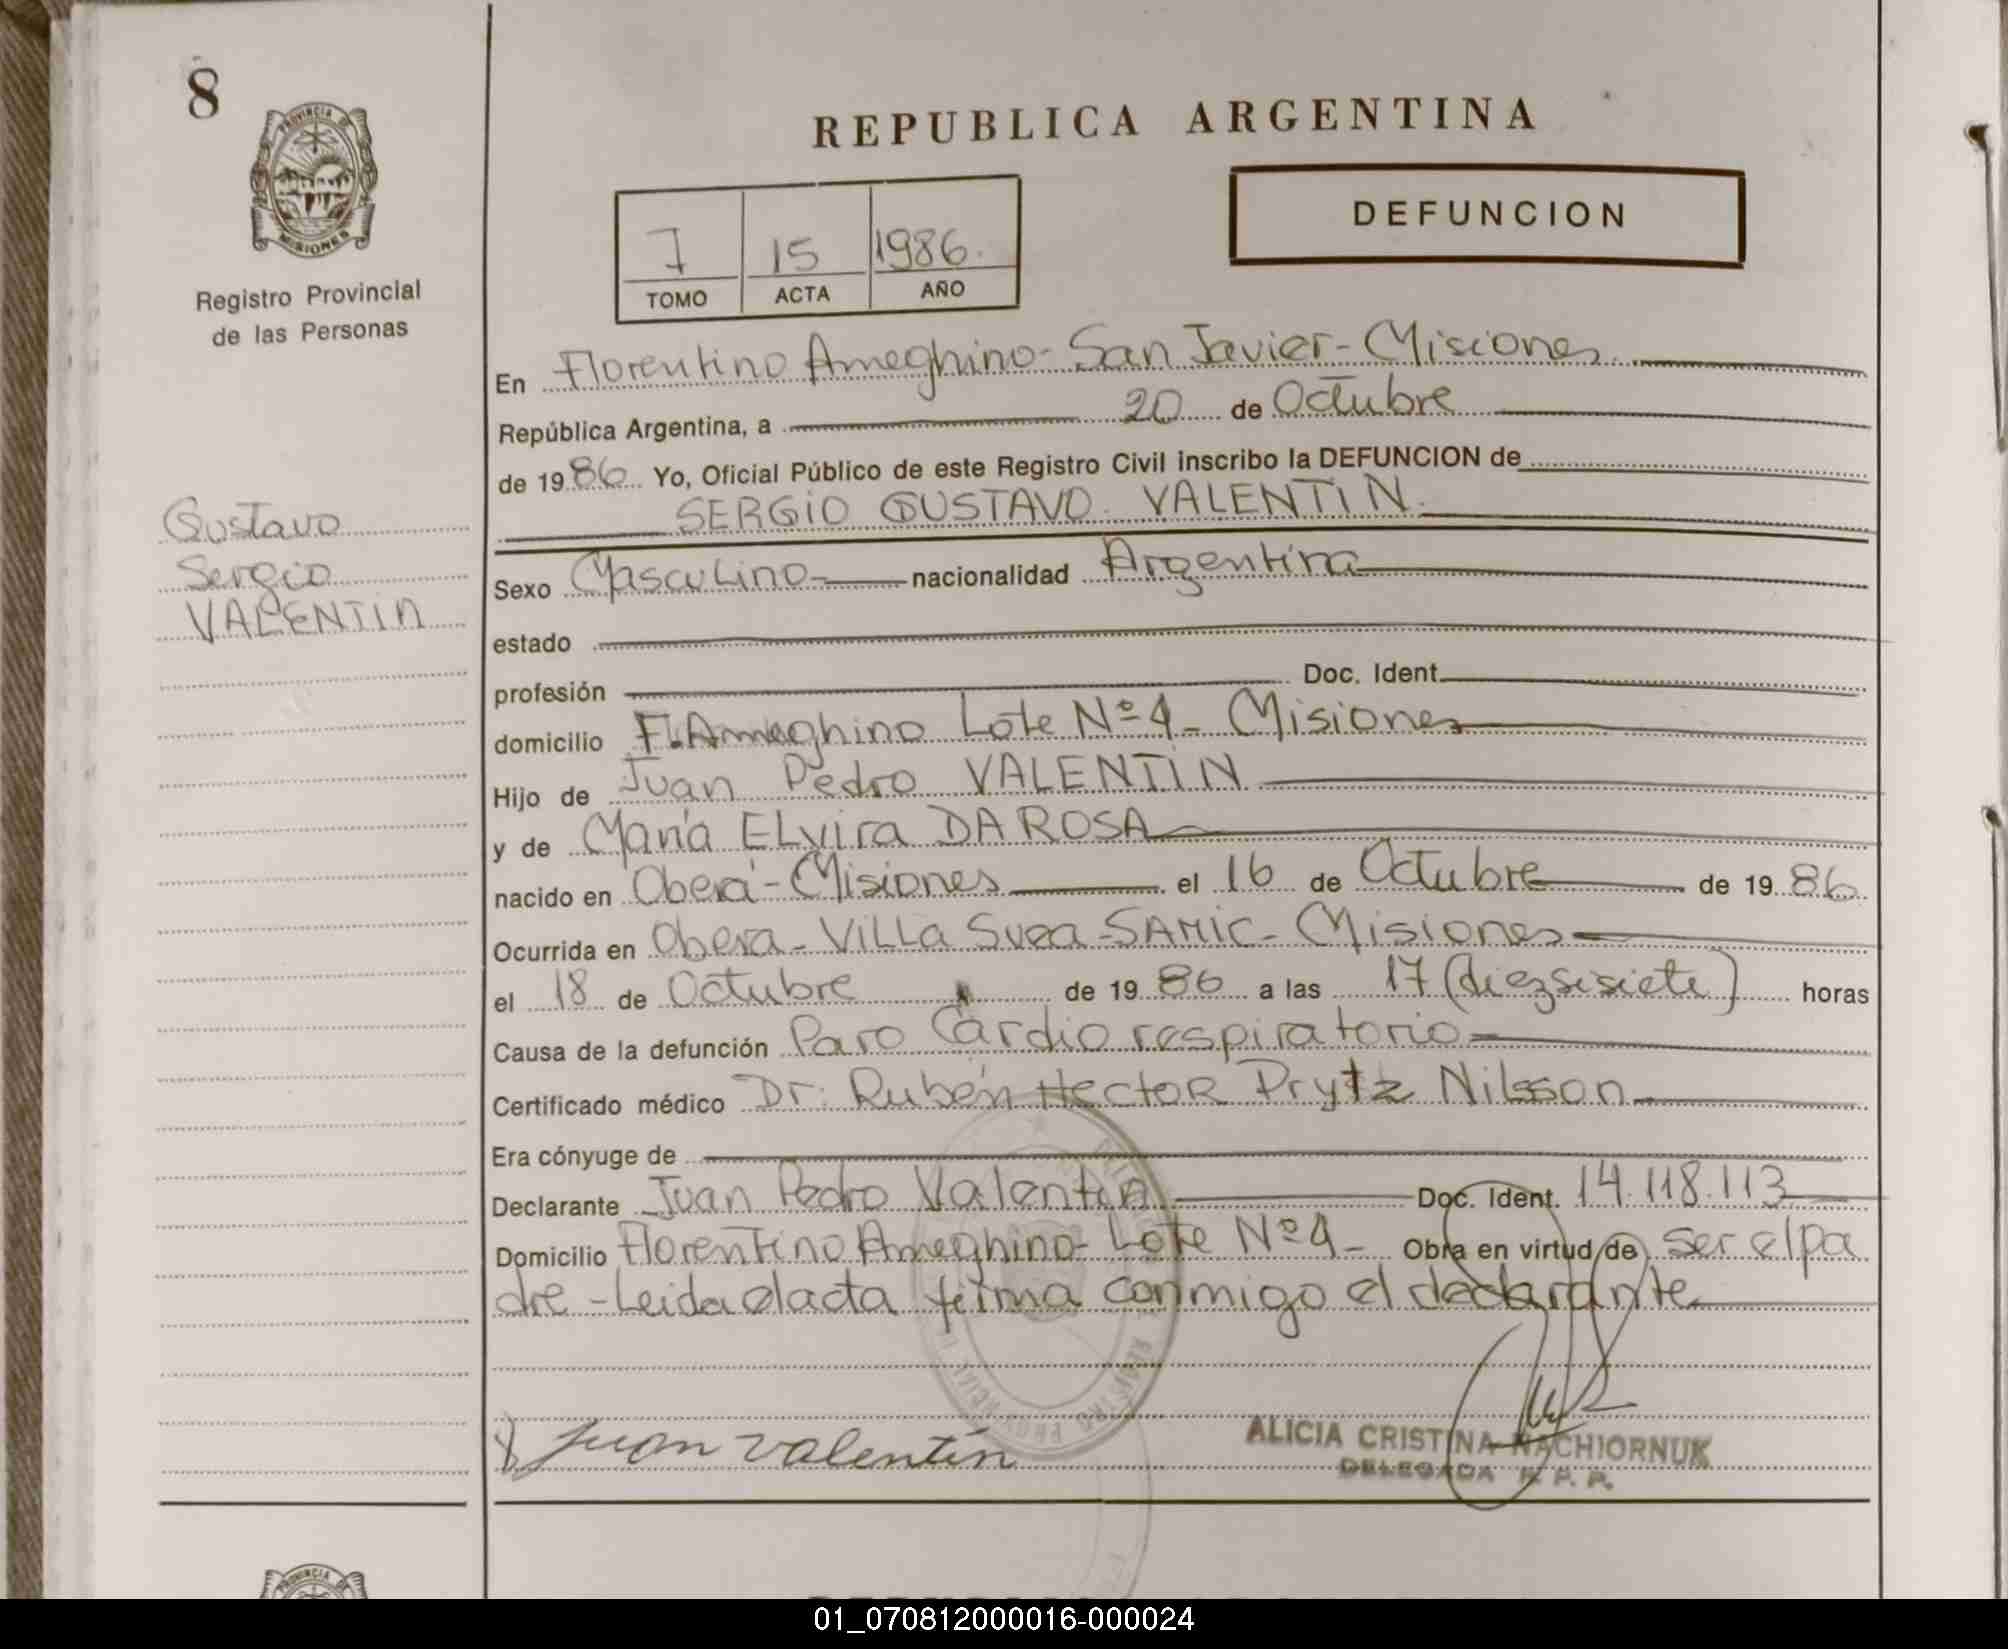 8
PROVINCIA DE
MISIONES
Registro Provincial
de las Personas
Gustavo
Sergio
VALENTIN
REPUBLICA ARGENTINA
DEFUNCION
I 15 1986.
TOMO ACTA AÑO
En Florentino Ameghino - San Javier - Misiones
República Argentina, a 20 de Octubre
de 1986 Yo, Oficial Público de este Registro Civil inscribo la DEFUNCION de
SERGIO GUSTAVO VALENTIN.
Sexo Masculino nacionalidad Argentina
estado
profesión Doc. Ident.
domicilio F. Ameghino Lote Nº 4 - Misiones
Hijo de Juan Pedro VALENTIN
y de María ELvira DA ROSA
nacido en Oberá - Misiones el 16 de Octubre de 1986
Ocurrida en Obera - ViLLa Svea - SAMIC - Misiones
el 18 de Octubre de 1986 a las 17 (diezsisiete) horas
Causa de la defunción Paro Cardio respiratorio
Certificado médico Dr: Rubén Hector Prytz Nilsson
Era cónyuge de
Declarante Juan Pedro Valentin Doc. Ident. 14.118.113
Domicilio Florentino Ameghino - Lote Nº 4 - Obra en virtud de ser el pa
dre - Leida el acta firma conmigo el declarante
Juan valentin
ALICIA CRISTINA NACHIORNUK
DELEGADA R. P. P.
PROVINCIA DE
01_070812000016-000024